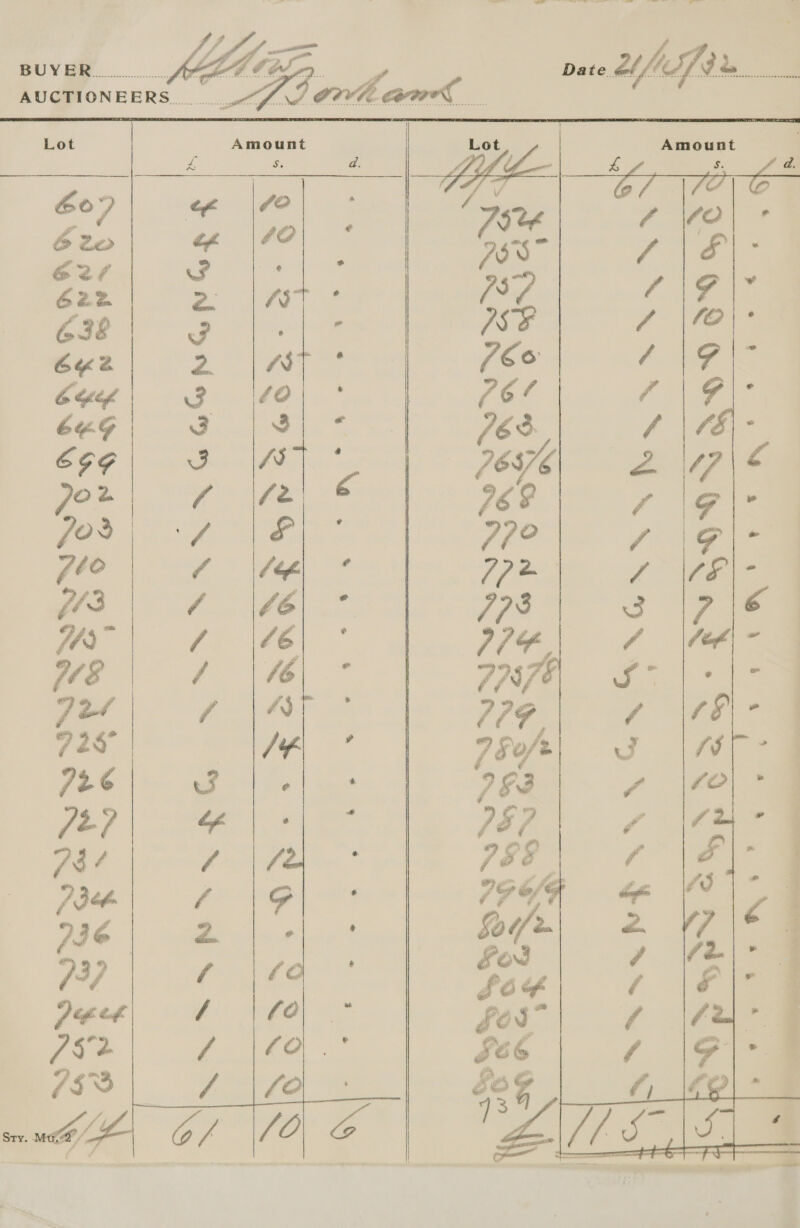 BUYER
Date 21/5/32
AUCTIONEERS
Lot Amount Lot Amount
£ s. d. £ s. d.
61 10 6
607 4 10 -
754 1 10 -
620 4 10 -
755 1 8 -
621 3 - -
757 1 9 -
622 2 15 -
758 1 10 -
638 3 - -
760 1 9 -
642 2 15 -
761 1 9 -
644 3 10 -
763 1 18 -
649 3 3 -
765/6 2 17 6
699 3 15 -
768 1 9 -
702 1 12 6
770 1 9 -
703 1 8 -
772 1 18 -
710 1 14 -
773 3 7 6
713 1 16 -
774 1 14 -
715 1 16 -
775/8 5 - -
718 1 16 -
779 1 18 -
721 1 15 -
780/2 3 15 -
725 14 -
783 1 10 -
726 3 - -
787 1 12 -
727 4 - -
788 1 8 -
731 1 12 -
796/9 4 15 -
734 1 9 -
801/2 2 17 6
736 2 - -
803 1 12 -
737 1 10 -
804 1 8 -
744 1 10 -
805 1 12 -
752 1 10 -
806 1 9 -
753 1 10 -
809
STY. MILL 61 10 6
£115 5
116 15